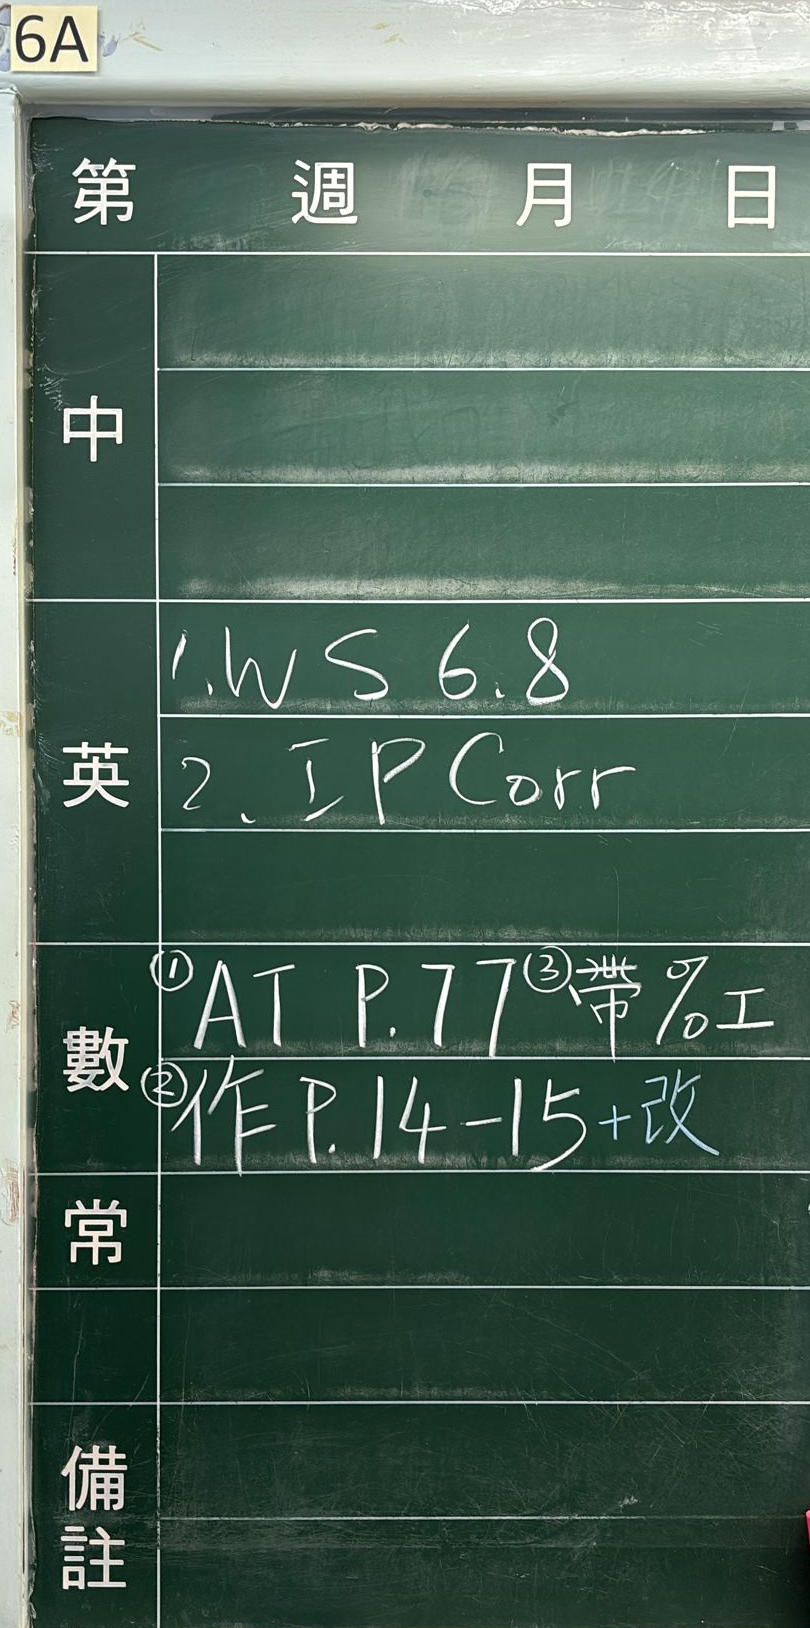 6A
第 週 月 日
中
英
1. WS 6.8
2. IP Corr
數
① AT P.77 ③ 帶%工
② 作 P.14-15+改
常
備註